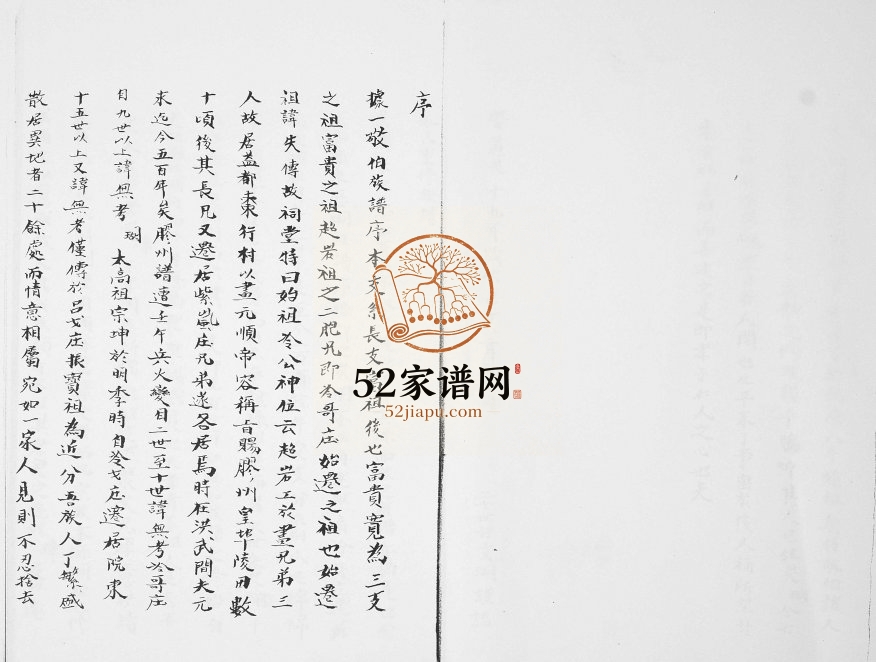 序
據一敬伯族譜序本支系長支富祖後也富貴寬為三支
之祖富貴之祖超岩祖之二胞兄即冷哥庄始遷之祖也始遷
祖諱失傳故祠堂特曰始祖冷公神位云超岩工於畫兄弟三
人故居益都棗行村以畫元順帝容稱旨賜膠州皇埠陵田數
十頃後其長兄又遷居紫嵐庄兄弟遂各居焉時在洪武間夫元
末迄今五百年矣膠州譜遭壬午兵火變自二世至十世諱無考冷哥庄
自九世以上諱無考 太高祖宗坤於明季時自冷戈庄遷居院東
十五世以上又諱無考僅傳於呂戈庄振寶祖為近分吾族人丁繁盛
散居異地者二十餘處而情意相屬宛如一家人見則不忍捨去
52家谱网
52jiapu.com